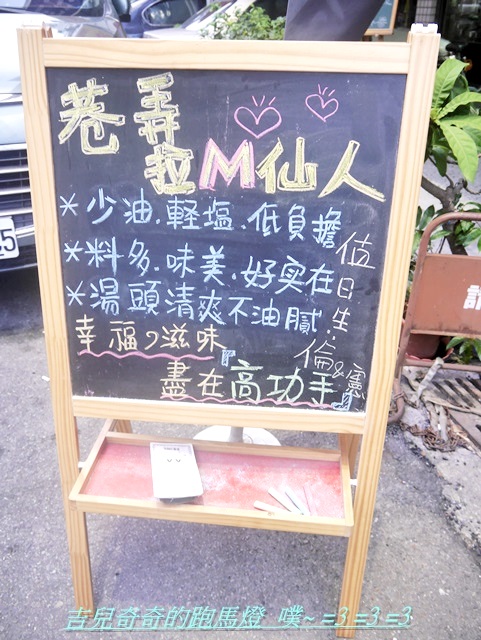 巷弄
拉M仙人
*少油.輕塩.低負擔
*料多.味美.好实在
*湯頭清爽不油膩.
幸福の滋味
盡在高功手
位日生:
倫&憲
5
吉兒奇奇的跑馬燈 噗~=3=3=3